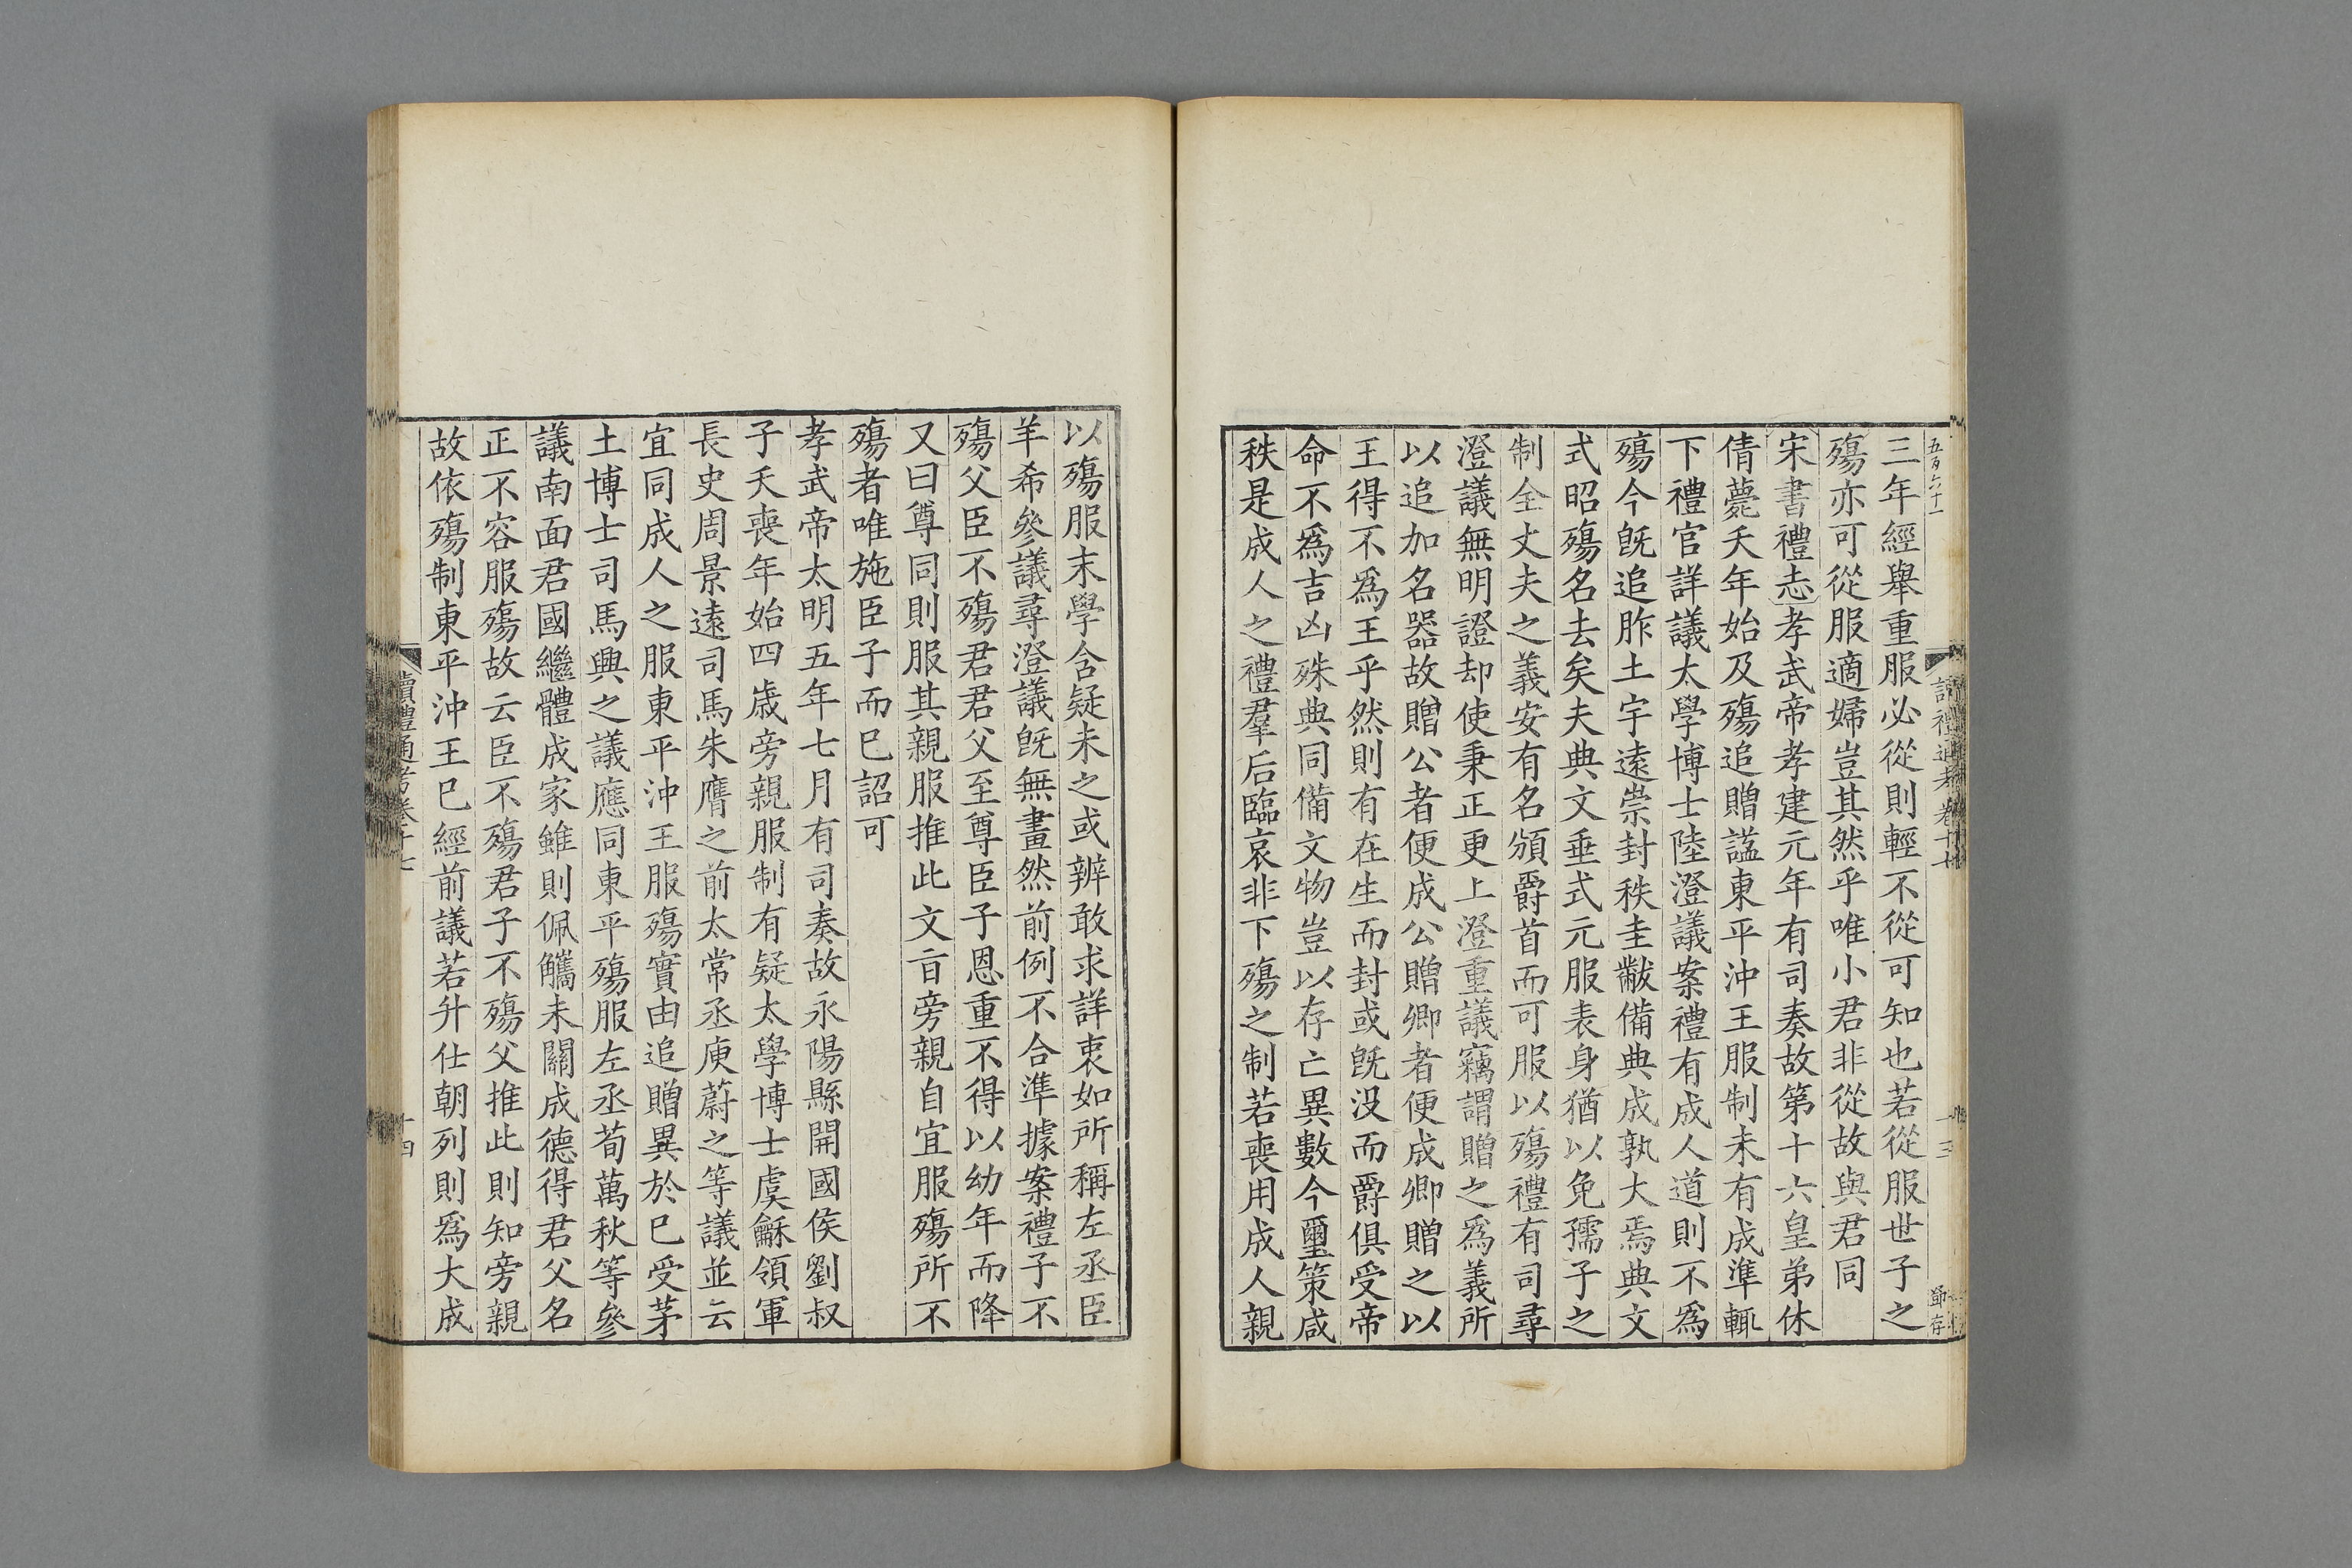 五百六十一
三年經舉重服必從則輕不從可知也若從服世子之
殤亦可從服適婦豈其然乎唯小君非從故與君同
宋書禮志孝武帝孝建元年有司奏故第十六皇弟休
倩薨夭年始及殤追贈諡東平沖王服制未有成準輒
下禮官詳議太學博士陸澄議案禮有成人道則不爲
殤今旣追胙土宇遠崇封秩圭黻備典成孰大焉典文
式昭殤名去矣夫典文垂式元服表身猶以免孺子之
制全丈夫之義安有名頒爵首而可服以殤禮有司尋
澄議無明證却使秉正更上澄重議竊謂贈之爲義所
以追加名器故贈公者便成公贈卿者便成卿贈之以
王得不爲王乎然則有在生而封或旣没而爵俱受帝
命不爲吉凶殊典同備文物豈以存亡異數今璽策咸
秩是成人之禮羣后臨哀非下殤之制若喪用成人親
讀禮通考卷十七
十三
鄧存
以殤服末學含疑未之或辨敢求詳衷如所稱左丞臣
羊希參議尋澄議旣無畫然前例不合準據案禮子不
殤父臣不殤君君父至尊臣子恩重不得以幼年而降
又曰尊同則服其親服推此文旨旁親自宜服殤所不
殤者唯施臣子而已詔可
孝武帝太明五年七月有司奏故永陽縣開國侯劉叔
子夭喪年始四歲旁親服制有疑太學博士虞龢領軍
長史周景遠司馬朱膺之前太常丞庾蔚之等議並云
宜同成人之服東平沖王服殤實由追贈異於已受茅
土博士司馬興之議應同東平殤服左丞荀萬秋等參
議南面君國繼體成家雖則佩觿未關成德得君父名
正不容服殤故云臣不殤君子不殤父推此則知旁親
故依殤制東平沖王已經前議若升仕朝列則爲大成
讀禮通考卷十七
十四